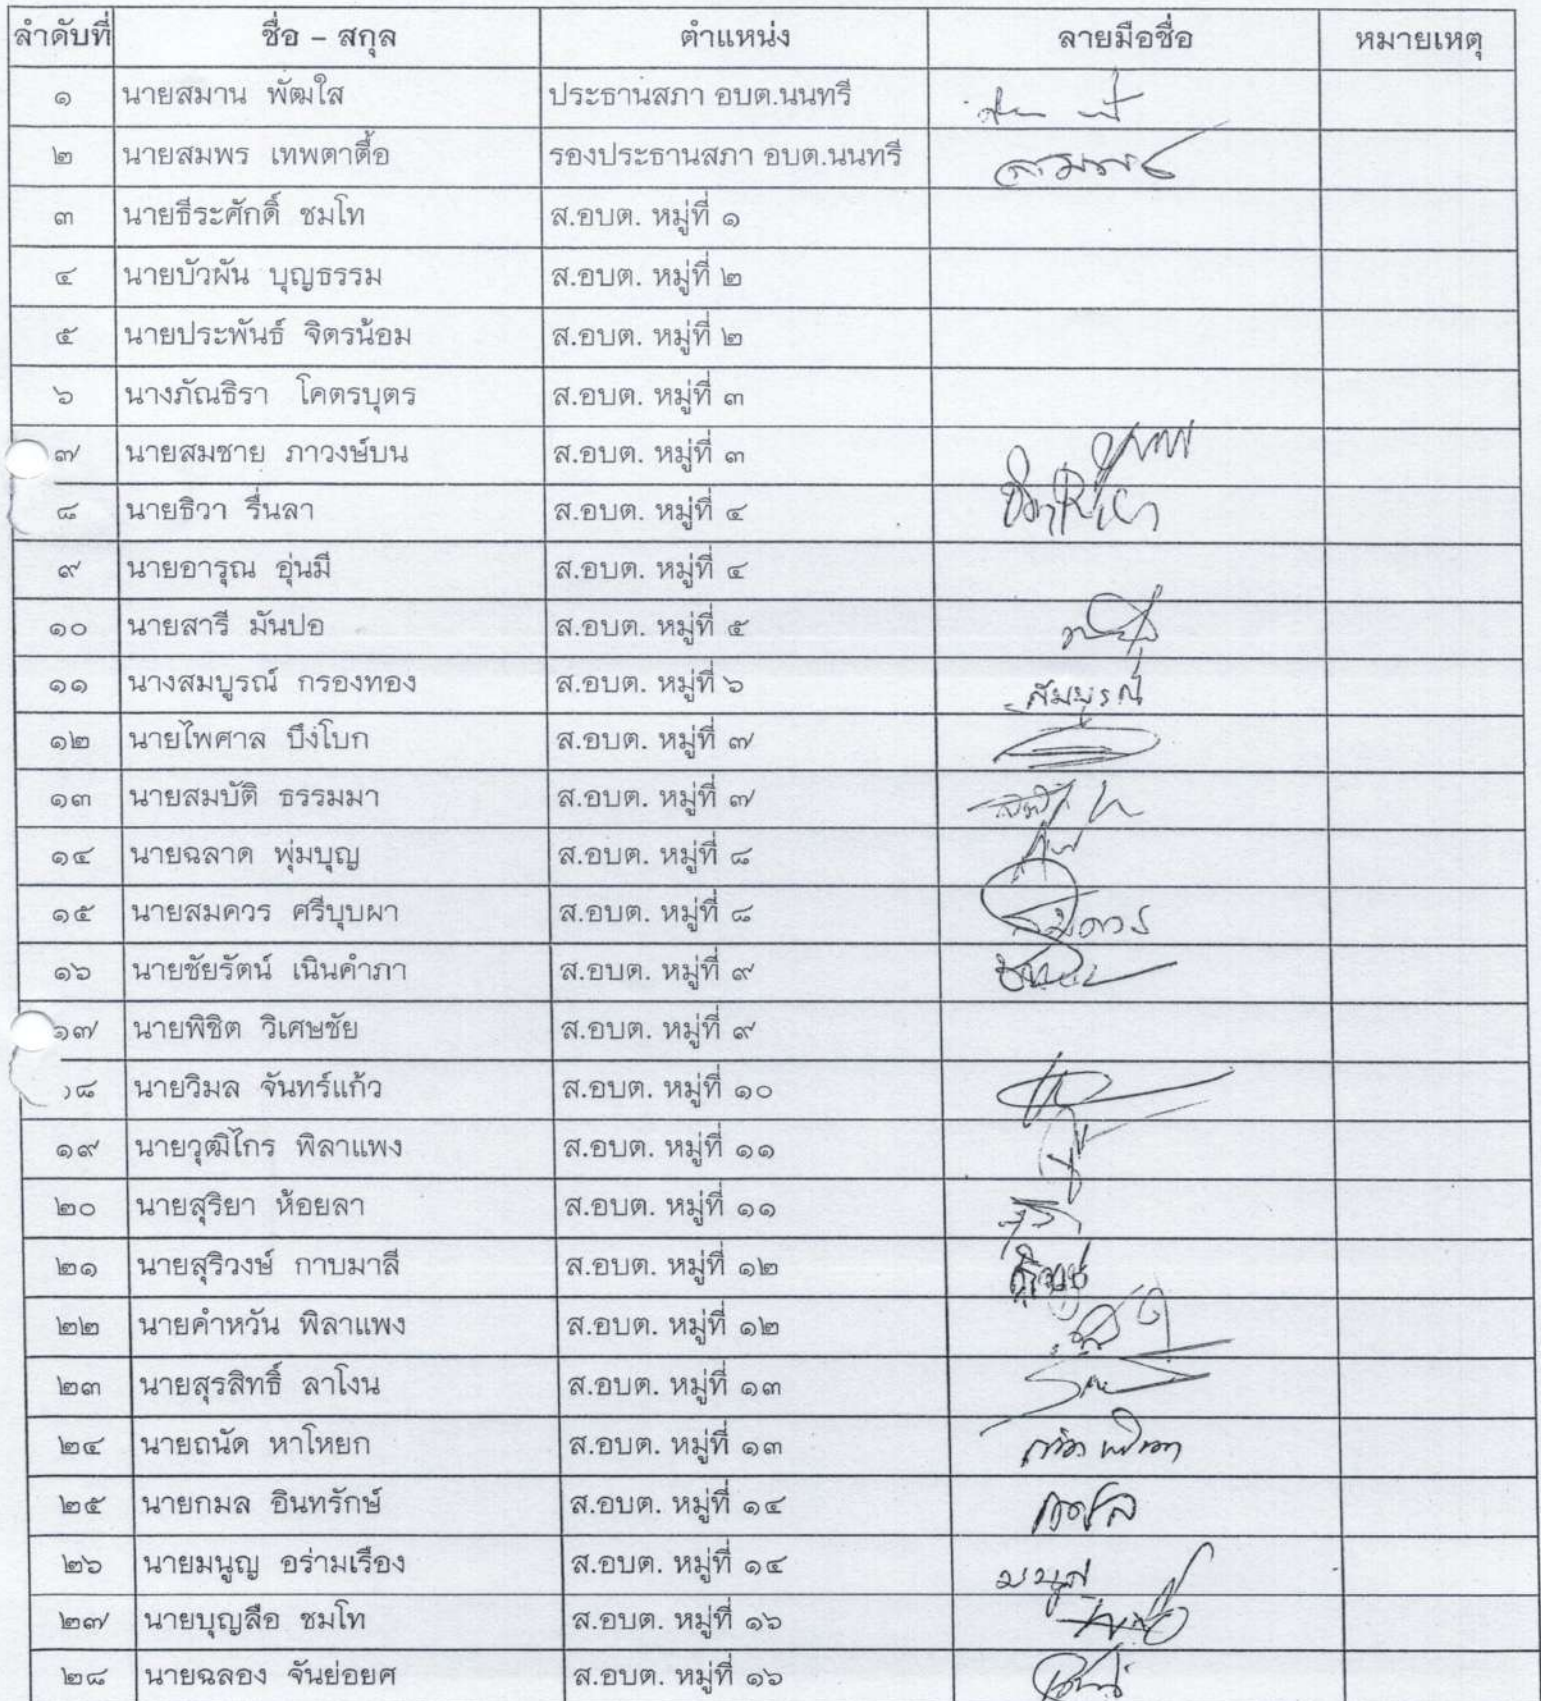 ลำดับที่ ชื่อ – สกุล ตำแหน่ง ลายมือชื่อ หมายเหตุ
๑ นายสมาน พัฒใส ประธานสภา อบต.นนทรี
๒ นายสมพร เทพตาตื้อ รองประธานสภา อบต.นนทรี
๓ นายธีระศักดิ์ ชมโท ส.อบต. หมู่ที่ ๑
๔ นายบัวผัน บุญธรรม ส.อบต. หมู่ที่ ๒
๕ นายประพันธ์ จิตรน้อม ส.อบต. หมู่ที่ ๒
๖ นางภัณธิรา โคตรบุตร ส.อบต. หมู่ที่ ๓
๗ นายสมชาย ภาวงษ์บน ส.อบต. หมู่ที่ ๓
๘ นายธิวา รื่นลา ส.อบต. หมู่ที่ ๔
๙ นายอารุณ อุ่นมี ส.อบต. หมู่ที่ ๔
๑๐ นายสารี มันปอ ส.อบต. หมู่ที่ ๕
๑๑ นางสมบูรณ์ กรองทอง ส.อบต. หมู่ที่ ๖ สัมบูรณ์
๑๒ นายไพศาล บึงโบก ส.อบต. หมู่ที่ ๗
๑๓ นายสมบัติ ธรรมมา ส.อบต. หมู่ที่ ๗
๑๔ นายฉลาด พุ่มบุญ ส.อบต. หมู่ที่ ๘
๑๕ นายสมควร ศรีบุบผา ส.อบต. หมู่ที่ ๘
๑๖ นายชัยรัตน์ เนินคำภา ส.อบต. หมู่ที่ ๙
๑๗ นายพิชิต วิเศษชัย ส.อบต. หมู่ที่ ๙
๑๘ นายวิมล จันทร์แก้ว ส.อบต. หมู่ที่ ๑๐
๑๙ นายวุฒิไกร พิลาแพง ส.อบต. หมู่ที่ ๑๑
๒๐ นายสุริยา ห้อยลา ส.อบต. หมู่ที่ ๑๑
๒๑ นายสุริวงษ์ กาบมาลี ส.อบต. หมู่ที่ ๑๒
๒๒ นายคำหวัน พิลาแพง ส.อบต. หมู่ที่ ๑๒
๒๓ นายสุรสิทธิ์ ลาโงน ส.อบต. หมู่ที่ ๑๓
๒๔ นายถนัด หาโหยก ส.อบต. หมู่ที่ ๑๓
๒๕ นายกมล อินทรักษ์ ส.อบต. หมู่ที่ ๑๔
๒๖ นายมนูญ อร่ามเรือง ส.อบต. หมู่ที่ ๑๔
๒๗ นายบุญลือ ชมโท ส.อบต. หมู่ที่ ๑๖
๒๘ นายฉลอง จันย่อยศ ส.อบต. หมู่ที่ ๑๖